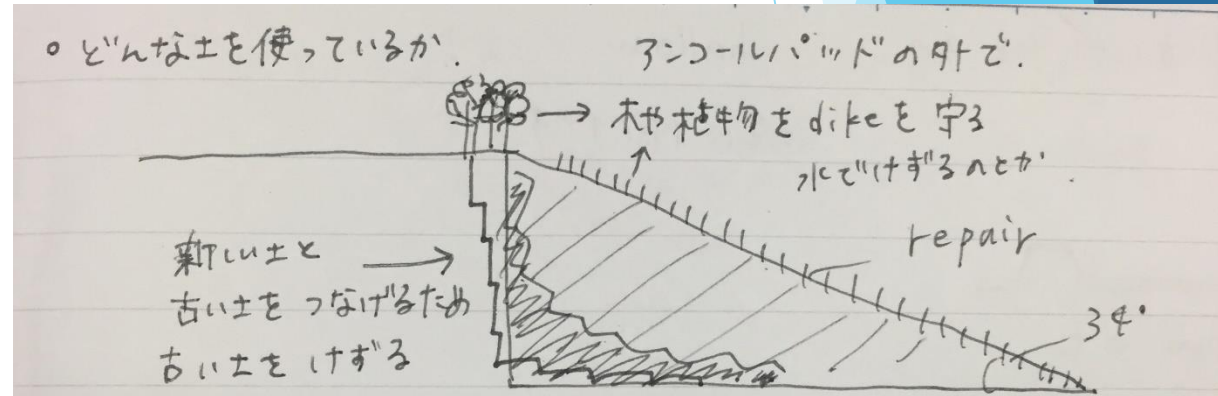 。どんな土を使っているか.
アンコールパッドの外で.
→ 木や植物を dikeを 守る
水でけずるのとか.
repair
新しい土と
古い土をつなげるため
古い土をけずる
34°